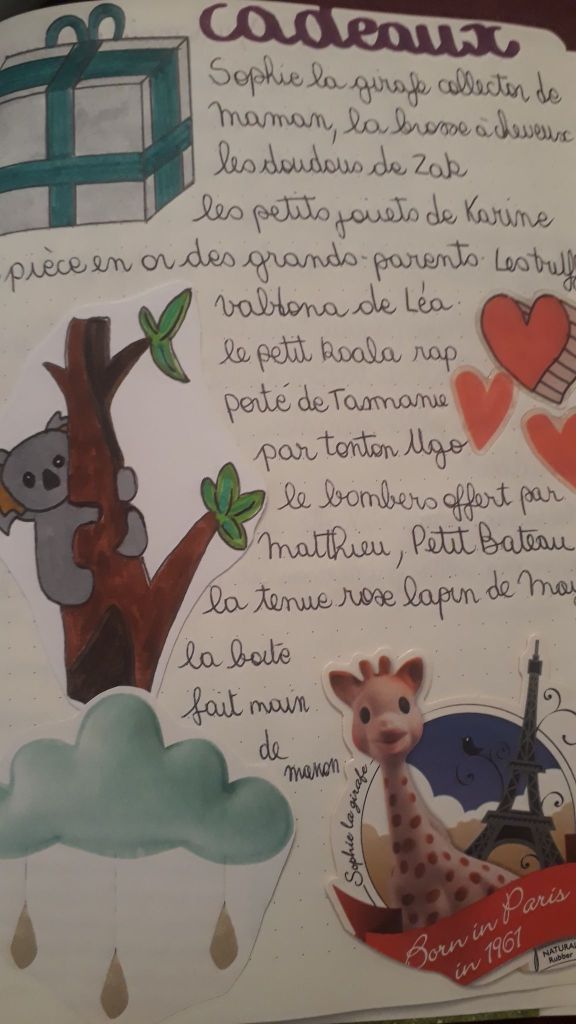 cadeaux
Sophie la girafe collector de
maman, la brosse à cheveux
les doudous de Zak
les petits jouets de Karine
pièce en or des grands-parents. Les
de Léa.
le petit koala rap
porté de Tasmanie
par tonton Ugo
le bombers offert par
Matthieu, Petit Bateau
la tenue rose lapin de
la boite
fait main
de
manon
Sophie la girafe
Born in Paris
in 1961
NATURAL
Rubber